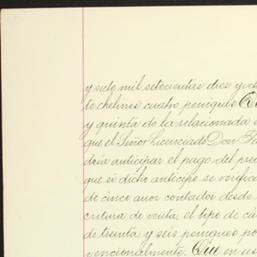 y siete mil setecientas diez y och
to chelines cuatro peniques. Cu
y quinta de la relacionada e
que el Señor Licenciado Don Fe
dría anticipar el pago del prec
que si dicho anticipo se verific
de cinco años contados desde
critura de venta, el tipo de ca
de treinta y seis peniques po
vencionalmente. Que en us